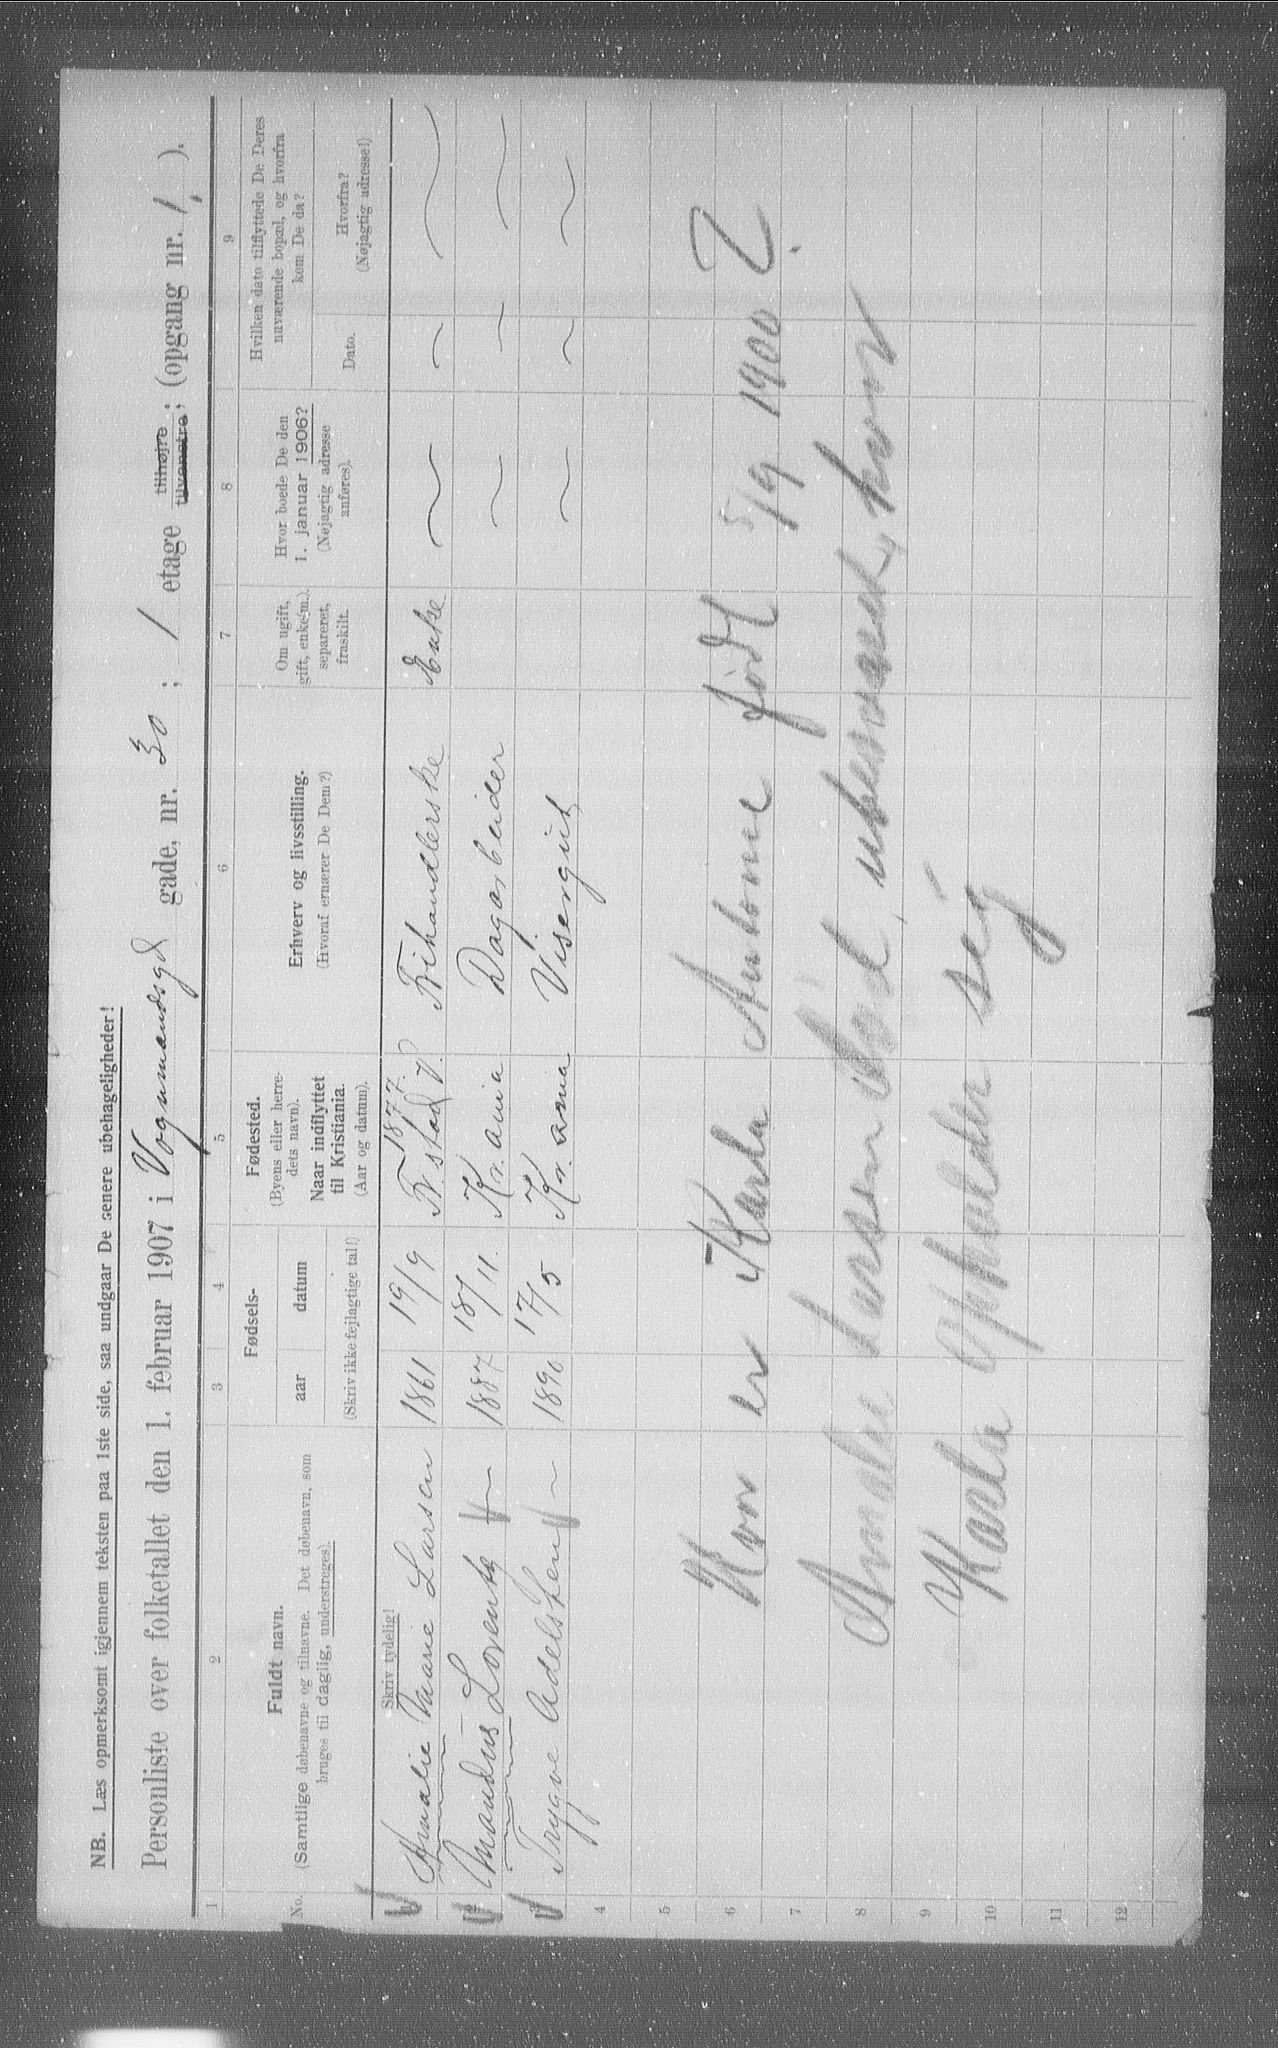 NB. Læs opmerksomt igjennem teksten paa 1ste side, saa undgaar De senere ubehageligheder!
Personliste over folketallet den 1. februar 1907 i Vognmandsgd gade, nr. 30 ; 1 etage tilhøjre tilvenstre; (opgang nr. 1, ).
1 2 3 4 5 6 7 8 9
No.
Fuldt navn.
(Samtlige døbenavne og tilnavne. Det døbenavn, som
bruges til daglig, understreges).
Skriv tydelig!
Fødsels-
aar datum
(Skriv ikke fejlagtige tal!)
Fødested.
(Byens eller herre-
dets navn).
Naar indflyttet
til Kristiania.
(Aar og datum).
Erhverv og livsstilling.
(Hvoraf ernærer De Dem?)
Om ugift,
gift, enke(m.),
separeret,
fraskilt.
Hvor boede De den
1. januar 1906?
(Nøjagtig adresse
anføres).
Hvilken dato tilflyttede De Deres
nuværende bopæl, og hvorfra
kom De da?
Dato.
Hvorfra?
(Nøjagtig adresse!)
1877.
Amalie Marie Larsen 1861 19/9 Fr.stad Frihandlerske Enke
2 Mandus Lorentz 1887 18/11. Kr.ania Dagarbeider
3 Trygve Adelsten 1890 17/5 Kr.ania Visergut
4
5
6 Hvor er Karla Antonie født 5/9 1900 ?
7
8 Amalie Larsen , ubekvandt, hvor
9 Karla opholder sig
10
11
12